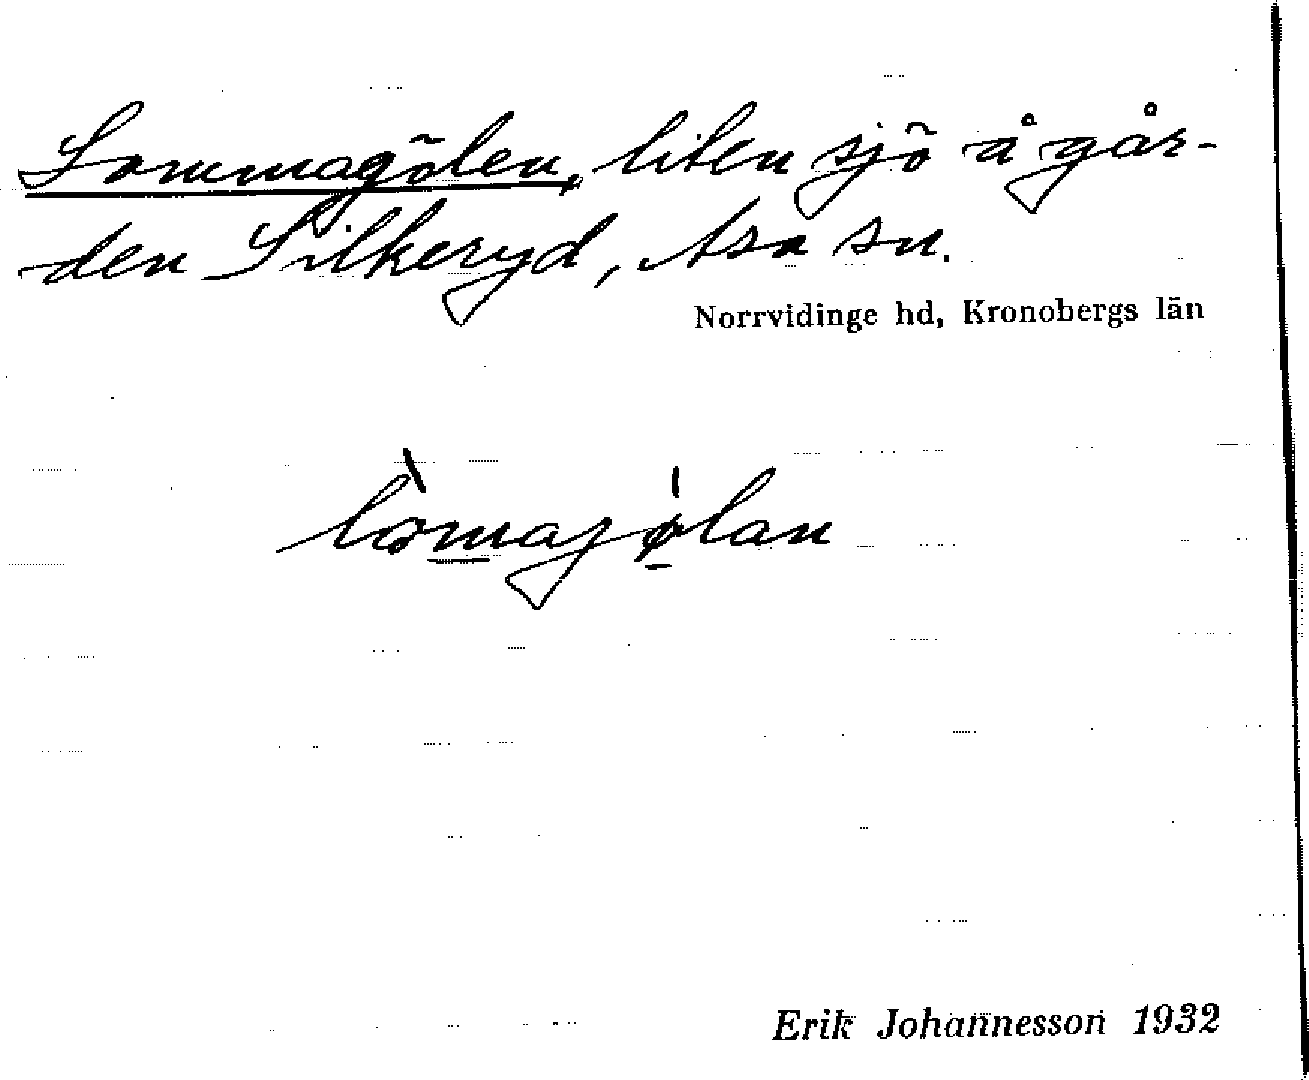 Lommagölen, liten sjö å går-
den Silkeryd, Asa sn.
Norrvidinge hd, Kronobergs län
lòm̲ajǿ̲lan
Erik Johannesson 1932